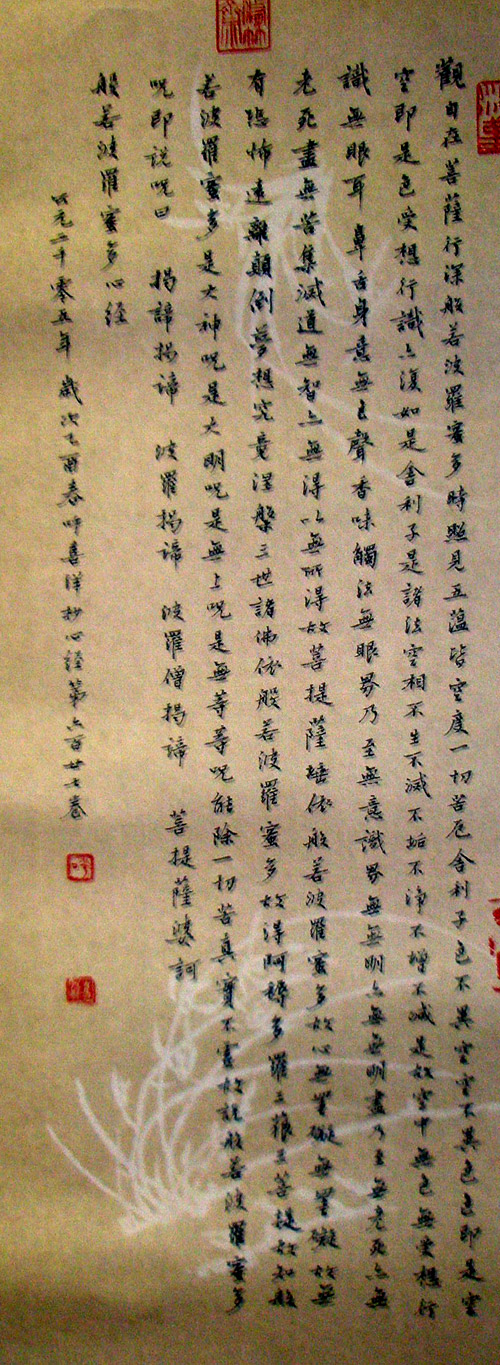 觀自在菩薩行深般若波羅蜜多時照見五蘊皆空度一切苦厄舍利子色不異空空不異色色即是空
空即是色受想行識亦復如是舍利子是諸法空相不生不滅不垢不淨不增不減是故空中無色無受想行
識無眼耳鼻舌身意無色聲香味觸法無眼界乃至無意識界無無明亦無無明盡乃至無老死亦無
老死盡無苦集滅道無智亦無得以無所得故菩提薩埵依般若波羅蜜多故心無罣礙無罣礙故無
有恐怖遠離顛倒夢想究竟涅槃三世諸佛依般若波羅蜜多故得阿耨多羅三藐三菩提故知般
若波羅蜜多是大神咒是大明咒是無上咒是無等等咒能除一切苦真實不虛故說般若波羅蜜多
咒即說咒曰 揭諦揭諦 波羅揭諦 波羅僧揭諦 菩提薩婆訶
般若波羅蜜多心经
公元二千零五年 歲次乙酉春叶喜洋抄心經第六百廿七卷